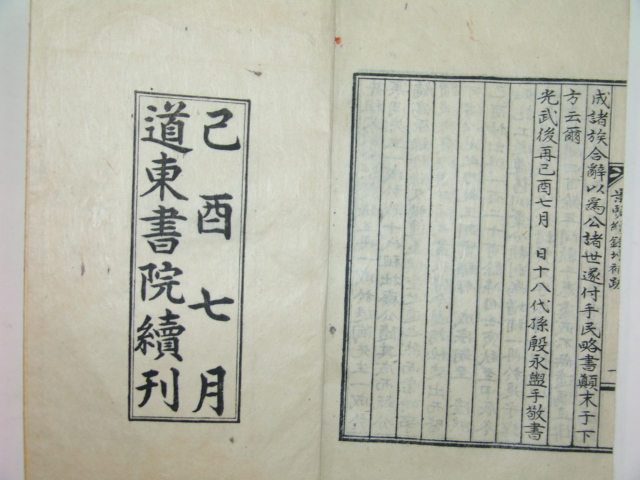 成諸族合辭以爲公諸世遂付手民略書顛末于下
方云爾
光武後再己酉七月 日十八代孫殷永盥手敬書
景賢續錄增補跋
一
己酉七月
道東書院續刊